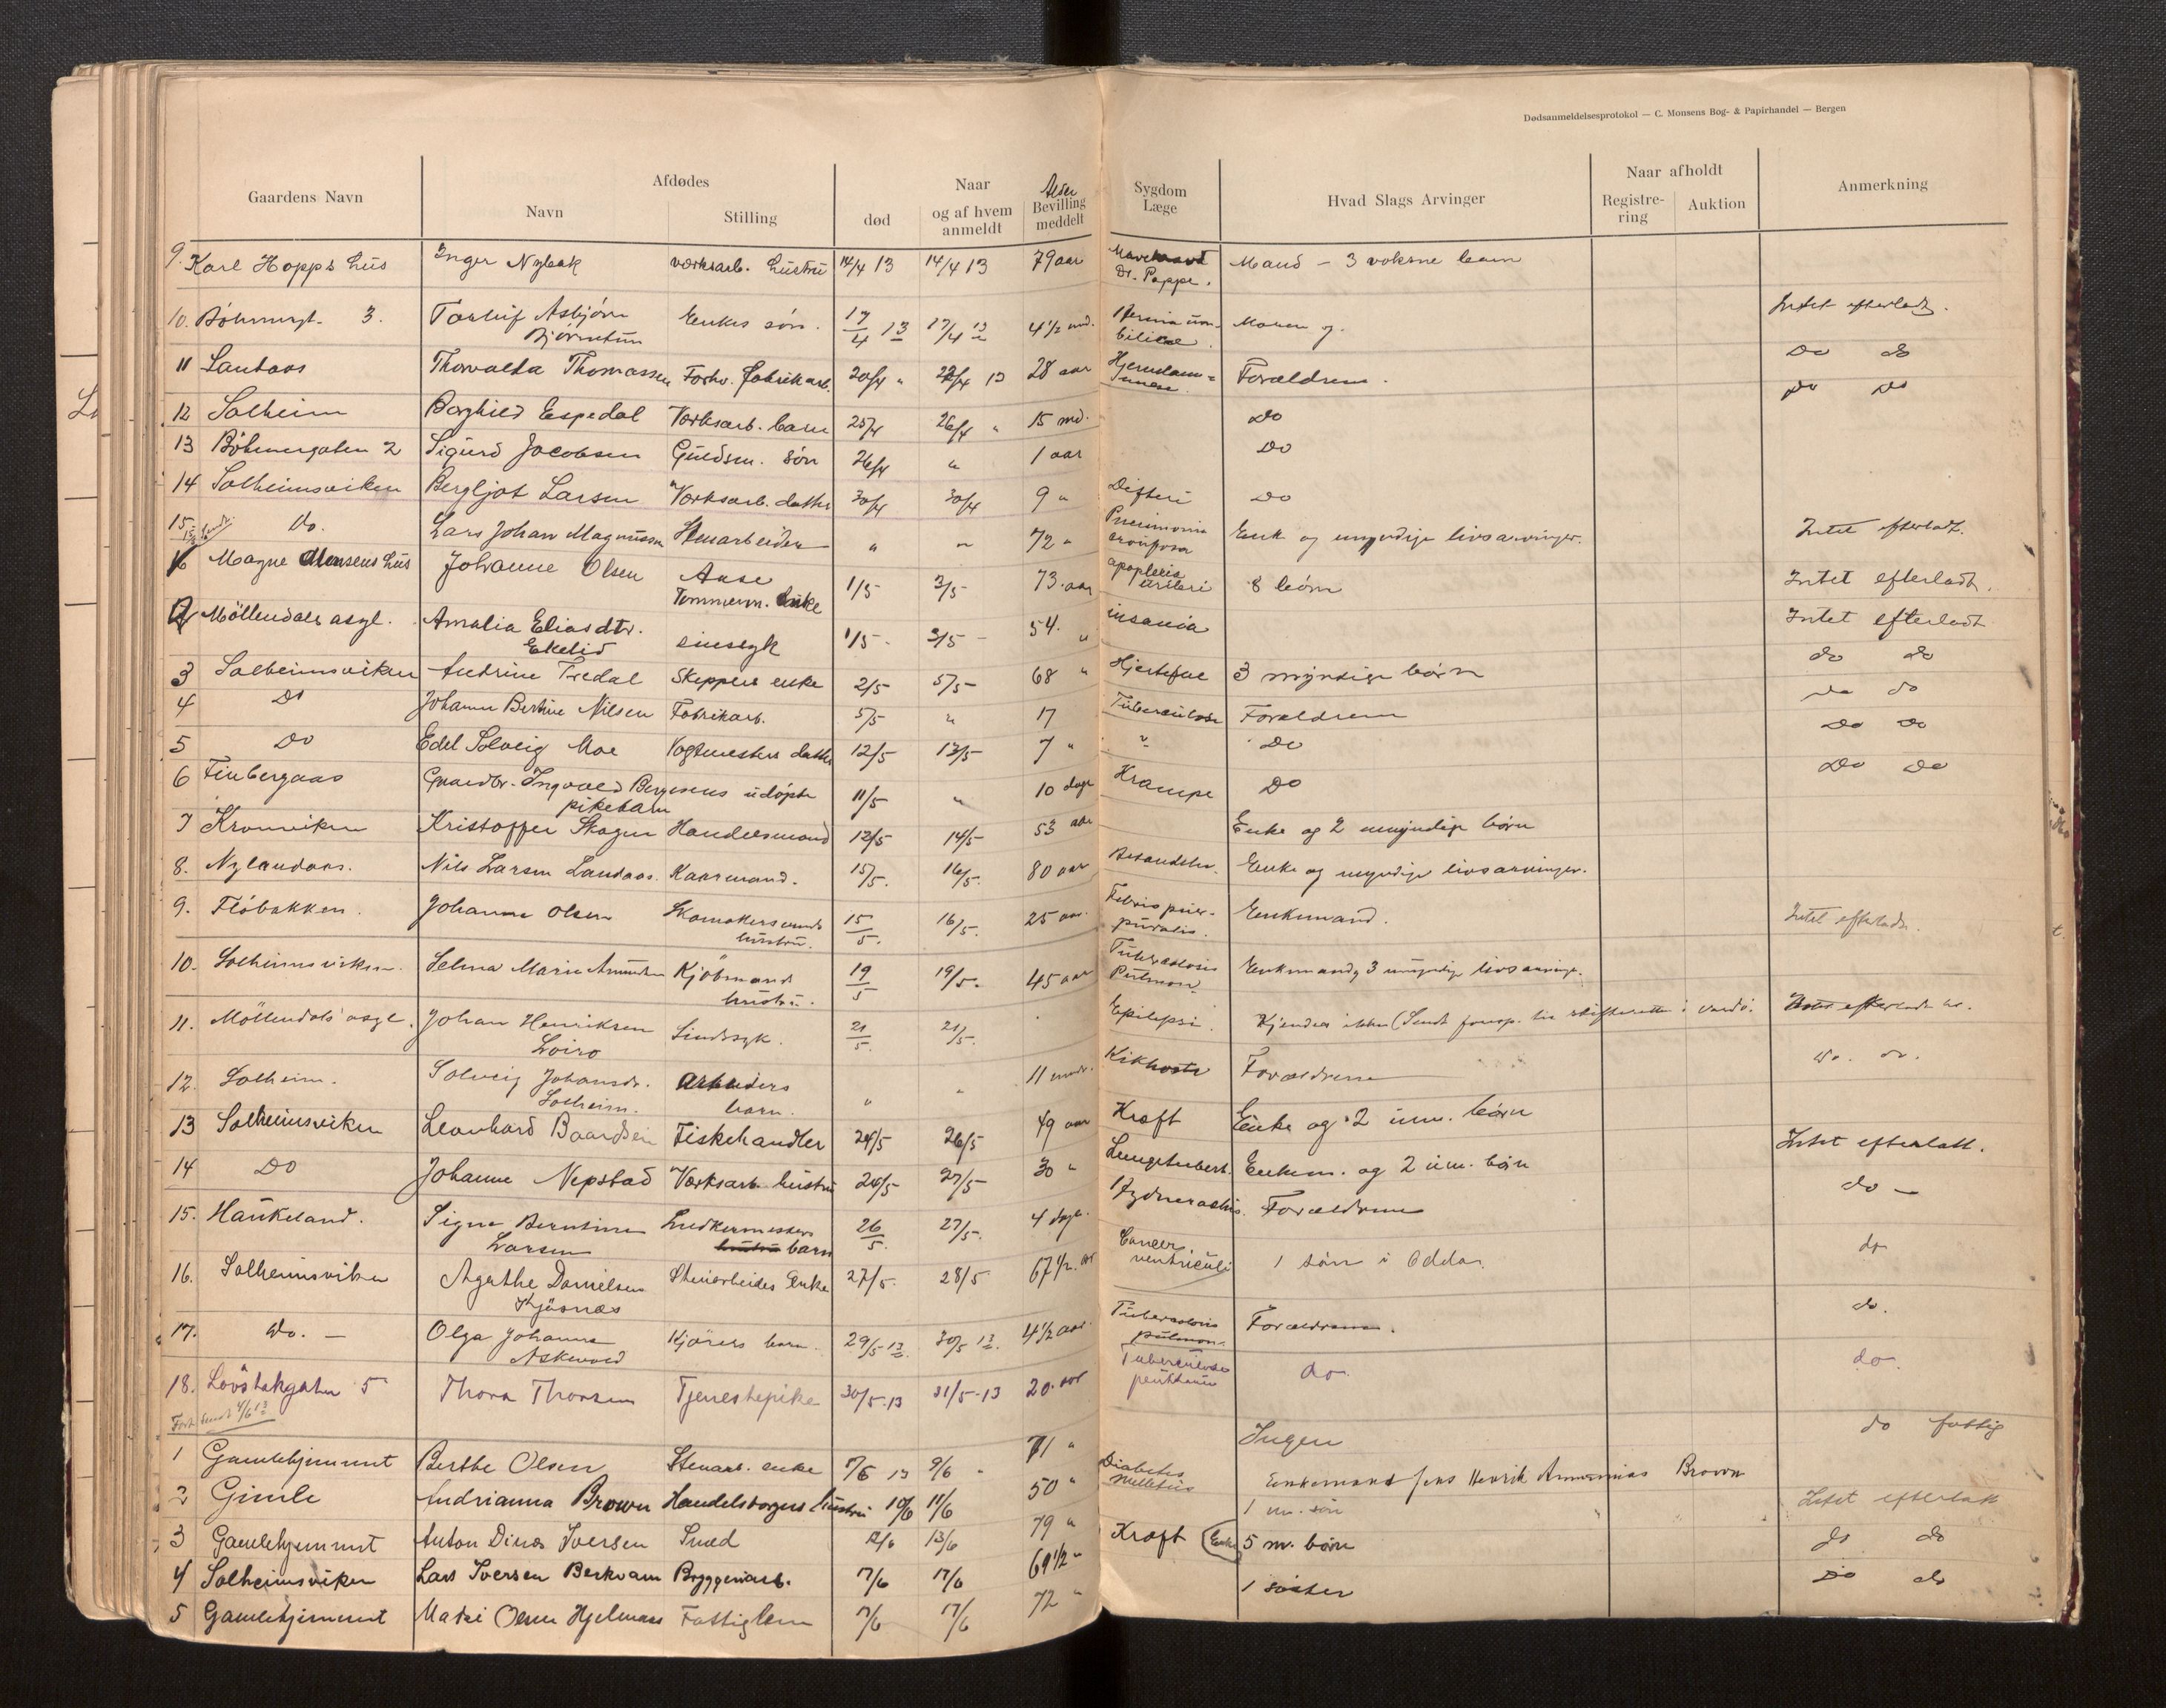 Dødsanmeldelsesprotokol — C. Monsens Bog- & Papirhandel — Bergen
Gaardens Navn
Afdødes
Navn
Stilling
Naar
død
og af hvem anmeldt
Alder
Bevilling meddelt
Sygdom
Læge
Hvad Slags Arvinger
Naar afholdt
Registre-
ring
Auktion
Anmerkning
9. Karl Hopps hus Inger værksarb. hustru 14/4 13 14/4 13 79 aar Dr. Poppe. Mand - 3 voksne barn
10. 3. Asbjørn Enkes søn. 17/4 13 17/4 13 4 1/2 md. Hernia um- Intet efterladt.
Bjørnetun bilical.
11 Landaas Thorvalda Thomassen Forhv. fabrikarb. 20/4 " 22/4 13 28 aar Forældrene. Do do
12 Solheim Borghild Espedal Værksarb. barn 25/4 26/4 " 15 md. Do Do Do
13 Böhmergaten 2 Sigurd Jacobsen Guldsm. søn 26/4 " 1 aar Do
14 Solheimsviken Bergljot Larsen Værksarb. datter 30/4 30/4 9 " Difteri Do
15 Do. Lars Johan Magnussen Stenarbeider " " 72 " Pneumonia Enke og umyndige livsarvinger. Intet efterladt.
crouposa
16 Magne Monsens hus Johanne Olsen 1/5 3/5 73 aar apoplexia 8 børn Intet efterladt.
Tømmerm. enke
2 Möllendals asyl. Amalia Eliasdtr. sinssyk 1/5 - 3/5 - 54. " insania Intet efterladt
Ekelid
3 Solheimsviken Andrine Tredal Skippers enke 2/5 5/5 - 68 " Hjertefeil 3 myndige børn do do
4 Do Johanne Bertine Nilsen Fabrikarb. 5/5 " 17 Tuberculose Forældrene do do
5 Do Edel Solveig Moe Vogtmesters datter 12/5 13/5 7 " " Do Do Do
6 Finbergaas Gaardbr. Ingvald Bergesens udöpte 11/5 " 10 dage Krampe Do Do Do
pikebarn
7 Kronviken Kristoffer Skogen Handelsmand 12/5 14/5 - 53 aar Enke og 2 umyndige børn
8. Nylandaas. Nils Larsen Landaas. Kaarmand. 15/5. 16/5. 80 aar Enke og myndige livsarvinger.
9. Flöbakken. Johanna Olsen hustru. 15/5. 16/5. 25 aar. Febris puer- Enkemand. Intet efterladt.
puralis.
10. Solheimsviken. Selma Marie Kjøbmands 19/5 19/5. 45 aar Tuberculosis Enkemand og 3 umyndige livsarvinger.
hustru. Pulmon.
11. Möllendals asyl. Johan Henriksen Sindssyk. 21/5. 21/5. Epilepsi. Kjendes ikke (Sendt foresp. til skifteretten i Vardö.
Loiro
12. Solheim. Solveig Johansdr. Arbeiders " " 11 mndr. Kikhoste Forældrene do. do.
Solheim. barn.
13 Solheimsviken Leonhard Baardsen Fiskehandler 24/5 26/5 49 aar Kræft Enke og 2 um. børn
14 Do Johanne Nepstad Værksarb. hustru 24/5 27/5 30 " Lungetuberk. Enkem. og 2 um. børn Intet efterlatt.
15. Haukeland. Signe Berntine barn 26/5. 27/5. 4 dage. Forældrene do -
Larsen
16. Solheimsviken Agathe Danielsen Stenarbeides Enke 27/5. 28/5 67 1/2. aar Cancer 1 søn i Odda. do
Kjösnæs ventriculi
17. Do. - Olga Johanne Kjørers barn. 29/5 13. 30/5 13. 4 1/2 aar. Tuberculosis Forældrene. do.
Askevold pulmon.
18. Lövstakgaten 5 Thora Thorsen Tjenestepike 30/5-13 31/5-13 20. aar Tuberculose do. do.
Fort. sendt 4/6 13
1 Gamlehjemmet Berthe Olsen Stenarb. enke 7/6 13 9/6 " 71 " Ingen do fattig
2 Gimle Andrianna Brown Handelsborgers hustru 10/6 11/6 50 " Diabetes Enkemand Jens Henrik Brown
mellitus 1 um. søn
3 Gamlehjemmet Anton Dines Iversen Smed 12/6 13/6 79 " Intet efterlatt
4 Solheimsviken Lars Iversen Berkvam Bryggeriarb. 17/6 17/6 69 1/2 " Kræft Enke 5 m. børn do do
5 Gamlehjemmet Olsen Fattiglem 17/6 17/6 72 " 1 søster Do do